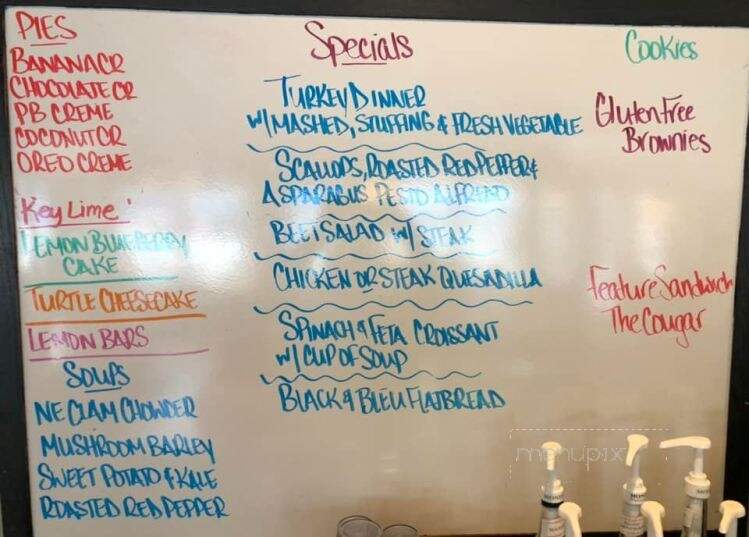 PIES
BANANA CR
CHOCOLATE CR
PB CREME
COCONUT CR
OREO CREME
Key Lime
LEMON BLUEBERRY
CAKE
TURTLE CHEESECAKE
LEMON BARS
SOUPS
NE CLAM CHOWDER
MUSHROOM BARLEY
SWEET POTATO & KALE
ROASTED RED PEPPER
Specials
TURKEY DINNER
W/ MASHED, STUFFING & FRESH VEGETABLE
SCALLOPS, ROASTED RED PEPPER &
ASPARAGUS PESTO ALFREDO
BEET SALAD W/ STEAK
CHICKEN OR STEAK QUESADILLA
SPINACH & FETA CROISSANT
W/ CUP OF SOUP
BLACK & BLEU FLATBREAD
Cookies
Gluten Free
Brownies
Feature Sandwich
The Cougar
menupix